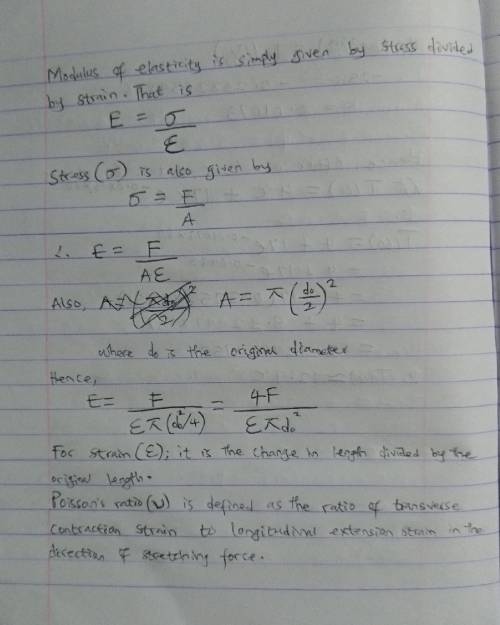 Modulus of elasticity is simply given by stress divided
by strain. That is
E = σ/ε
Stress (σ) is also given by
σ = F/A
∴ E = F/Aε
Also, A = π(d₀/2)²
where d₀ is the original diameter
Hence,
E = F/επ(d₀²/4) = 4F/επd₀²
For strain (ε); it is the change in length divided by the
original length.
Poisson's ratio (ν) is defined as the ratio of transverse
contraction strain to longitudinal extension strain in the
direction of stretching force.